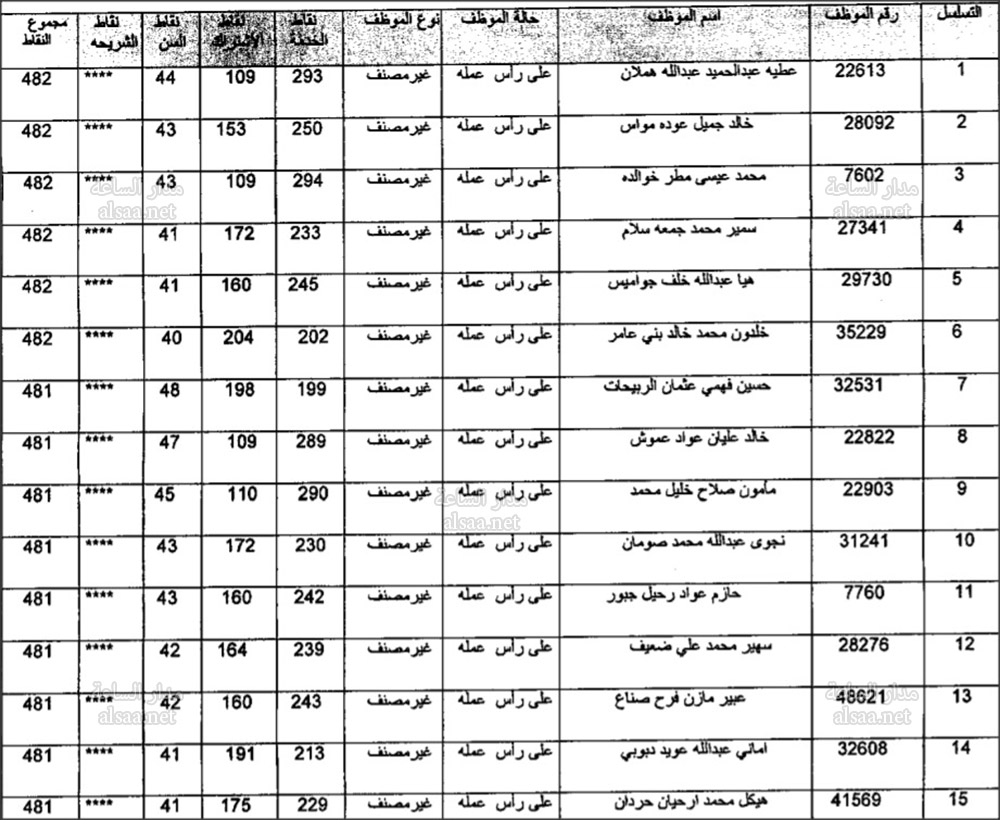 التسلسل رقم الموظف اسم الموظف حالة الموظف نوع الموظف نقاط الخدمة نقاط الاشتراك نقاط السن نقاط الشريحه مجموع النقاط
1 22613 عطيه عبدالحميد عبدالله هملان على رأس عمله غيرمصنف 293 109 44 **** 482
2 28092 خالد جميل عوده مواس على رأس عمله غيرمصنف 250 153 43 **** 482
3 7602 محمد عيسى مطر خوالده على رأس عمله غيرمصنف 294 109 43 **** 482
4 27341 سمير محمد جمعه سلام على رأس عمله غيرمصنف 233 172 41 **** 482
5 29730 هيا عبدالله خلف جواميس على رأس عمله غيرمصنف 245 160 41 **** 482
6 35229 خلدون محمد خالد بني عامر على رأس عمله غيرمصنف 202 204 40 **** 482
7 32531 حسين فهمي عثمان الربيحات على رأس عمله غيرمصنف 199 198 48 **** 481
8 22822 خالد عليان عواد عموش على رأس عمله غيرمصنف 289 109 47 **** 481
9 22903 مأمون صلاح خليل محمد على رأس عمله غيرمصنف 290 110 45 **** 481
10 31241 نجوى عبدالله محمد صومان على رأس عمله غيرمصنف 230 172 43 **** 481
11 7760 حازم عواد رحيل جبور على رأس عمله غيرمصنف 242 160 43 **** 481
12 28276 سهير محمد علي ضعيف على رأس عمله غيرمصنف 239 164 42 **** 481
13 48621 عبير مازن فرح صناع على رأس عمله غيرمصنف 243 160 42 **** 481
14 32608 اماني عبدالله عويد دبوبي على رأس عمله غيرمصنف 213 191 41 **** 481
15 41569 هيكل محمد ارحيان حردان على رأس عمله غيرمصنف 229 175 41 **** 481
مدار الساعة
alsaa.net
مدار الساعة
alsaa.net
مدار الساعة
alsaa.net
مدار الساعة
alsaa.net
مدار الساعة
alsaa.net